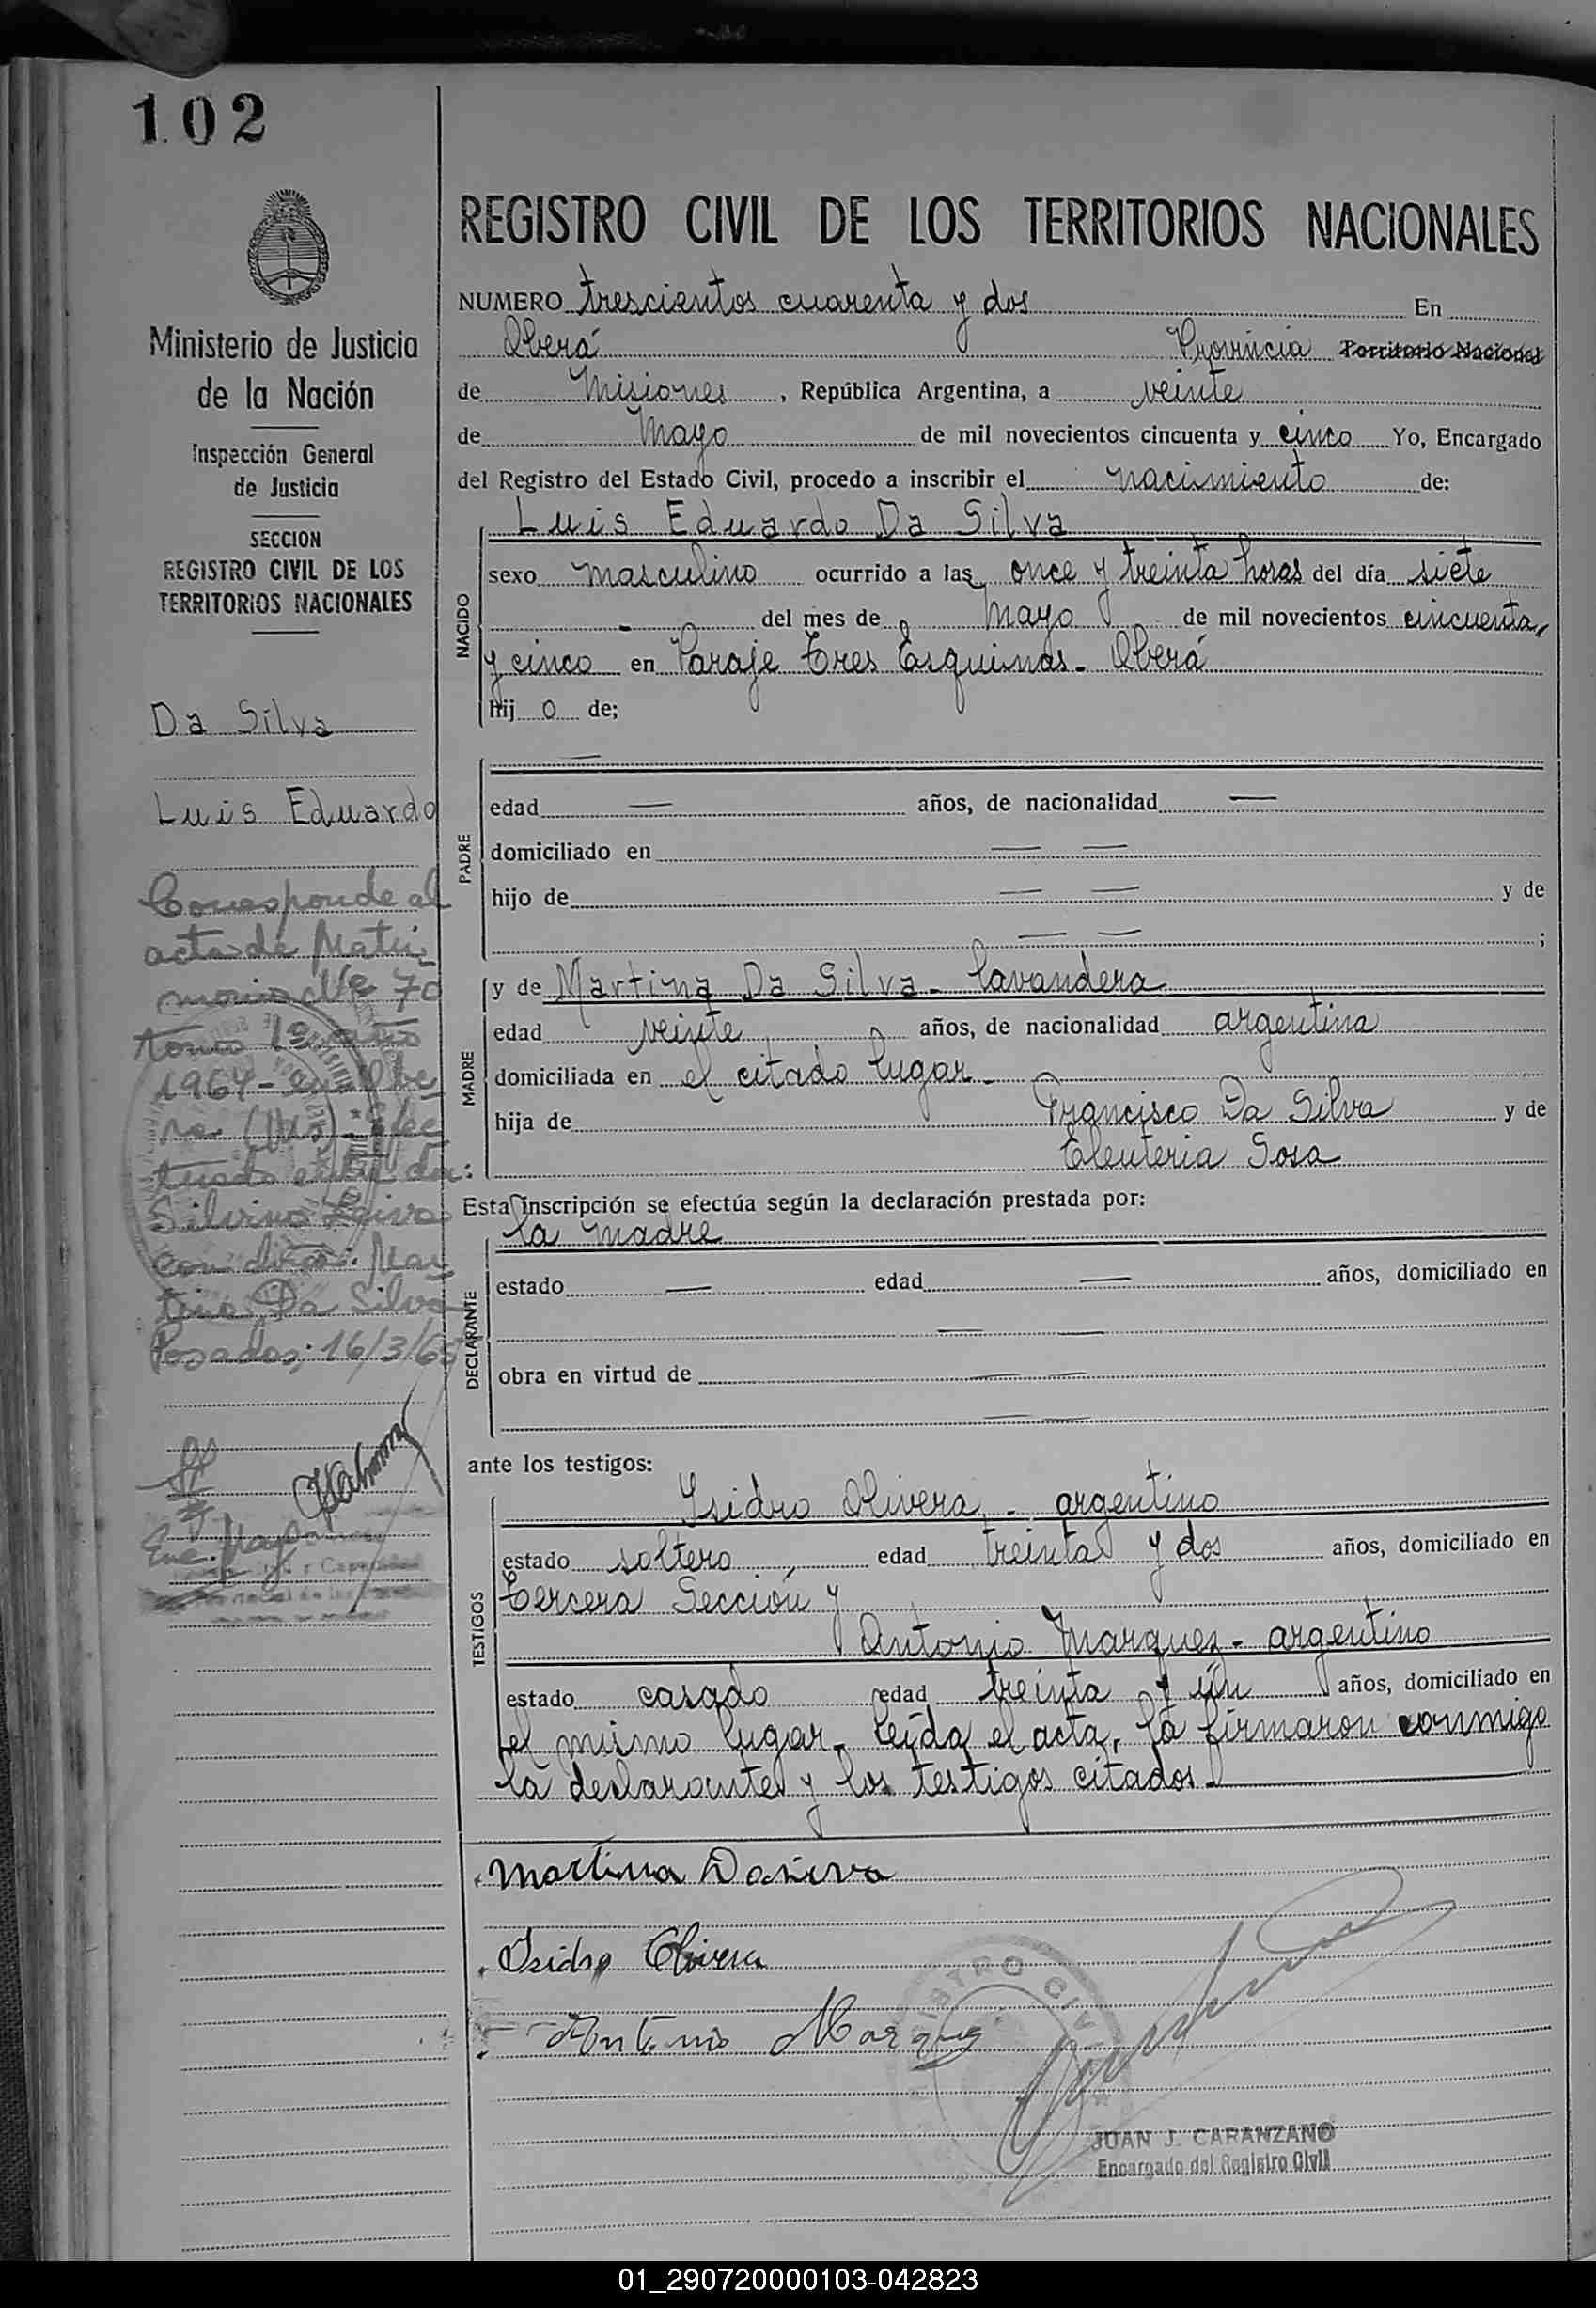 102
Ministerio de Justicia
de la Nación
Inspección General
de Justicia
SECCION
REGISTRO CIVIL DE LOS
TERRITORIOS NACIONALES
Da Silva
Luis Eduardo
Corresponde al
acta de Matri-
monio Nº 70
tomo 1º año
1964 - en Obe
ra (Ms) - efec
tuado entre don:
Silvino Leiva
con doña: Mar
tina Da Silva
Posadas; 16/3/65
REGISTRO CIVIL DE LOS TERRITORIOS NACIONALES
NUMERO trescientos cuarenta y dos En
Oberá Provincia Territorio Nacional
de Misiones, República Argentina, a veinte
de Mayo de mil novecientos cincuenta y cinco Yo, Encargado
del Registro del Estado Civil, procedo a inscribir el nacimiento de:
NACIDO
Luis Eduardo Da Silva
sexo masculino ocurrido a las once y treinta horas del día siete
- del mes de Mayo de mil novecientos cincuenta
y cinco en Paraje Tres Esquinas - Oberá
hij o de;
PADRE
—
edad — años, de nacionalidad —
domiciliado en — —
hijo de — — y de
— — ;
MADRE
y de Martina Da Silva - lavandera
edad veinte años, de nacionalidad argentina
domiciliada en el citado lugar -
hija de Francisco Da Silva y de
Eleuteria Sosa
Esta inscripción se efectúa según la declaración prestada por:
DECLARANTE
la madre
estado — edad — años, domiciliado en
— —
obra en virtud de — —
— —
ante los testigos:
TESTIGOS
Isidro Olivera - argentino
estado soltero edad treinta y dos años, domiciliado en
Tercera Sección y
Antonio Marquez - argentino
estado casado edad treinta y un años, domiciliado en
el mismo lugar - Leída el acta, la firmaron conmigo
la declarante y los testigos citados -
Martina Dasirva
Isidro Olivera
Antonio Marquez
REGISTRO CIVIL
JUAN J. CARANZANO
Encargado del Registro Civil
01_290720000103-042823